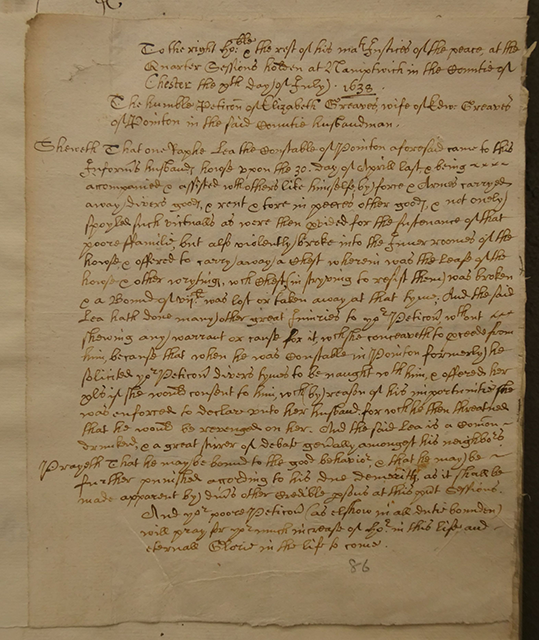 To the right ho:ble & the rest of his mats Justices of the peace, at the
Quarter Sessions holden at Namptwich in the Countie of
Chester the xth day of July. 1638
The humble Peticon of Elizabeth Greaves wife of Edw: Greaves
of Pointon in the said Countie husbandman.
Sheweth That one Raphe Lea the Constable of Pointon aforesaid came to this
Informts husbands house upon the 30. day of Aprill last & being
acompanied & assisted wth others like himself by force & Armes carryed
away divers goods, & rent & tore in peeces other goods, & not onely
spoyled such victualls as were then pvided for the sustenance of that
poore ffamilie, but also violently broke into the Inner roomes of the
house & offered to carry away a Chest wherein was the Lease of the
house & other wryting, wch Chest (in stryving to resist them) was broken
& a Bond of was lost or taken away at that tyme. And the said
Lea hath done many other great Iniuries to yor Peticonr wthout
shewing any warrant or cause for it, wch she conceaveth to pceede from
him, because that when he was Constable in Pointon formerly he
solicited yor Peticonr divers tymes to be naught wth him, & offered her
xls if she would consent to him, wch by reason of his importunitie she
was enforced to declare unto her husband, for wch he then threatned
that he would be revenged on her. And the said Lea is a Comon
drunkard, & a great stirrer of debate genally amongst his neighbors
Prayeth That he may be bound to the good behavior, & that he may be
further punished acording to his due demeritts, as it shall be
made apparent by divrs other Credible psons at this psnt Sessions.
And yor poore Peticonr (as elshow in all dutie bounden)
will pray for yor much increase of hor: in this life and
eternall Glorie in the life to come.
86